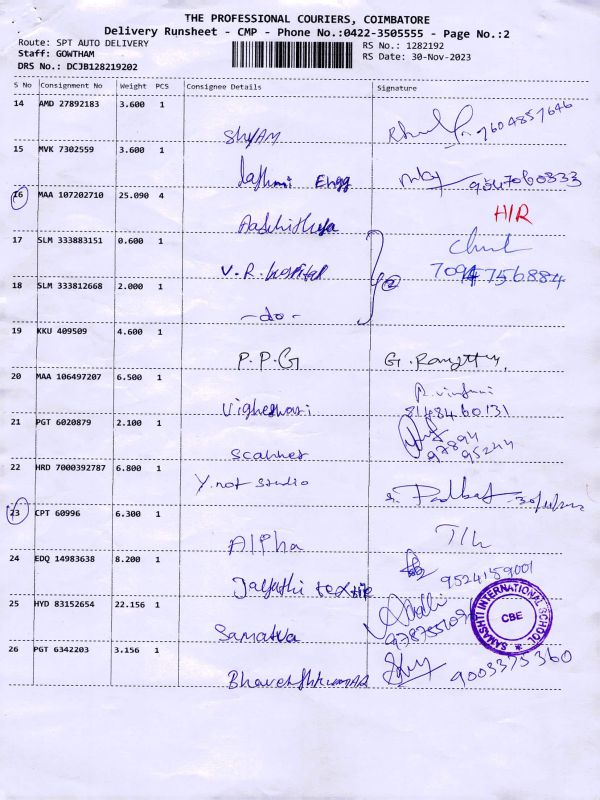 THE PROFESSIONAL COURIERS, COIMBATORE
Delivery Runsheet - CMP - Phone No.:0422-3505555 - Page No.:2
Route: SPT AUTO DELIVERY RS No.: 1282192
Staff: GOWTHAM RS Date: 30-Nov-2023
DRS No.: DCJB128219202
S No Consignment No Weight PCS Consignee Details Signature
14 AMD 27892183 3.600 1
Shyam 7604857646
15 MVK 7302559 3.600 1
Engg 9547060833
16 MAA 107202710 25.090 4
H/R
17 SLM 333883151 0.600 1
V.R. hospital 7094756884
18 SLM 333812668 2.000 1
-do-
19 KKU 409509 4.600 1
P.P.G G.
20 MAA 106497207 6.500 1
Vigheswari 8148460131
21 PGT 6020879 2.100 1
Scanner 97894 95244
22 HRD 7000392787 6.800 1
Y.not studio
23 CPT 60996 6.300 1
Alpha
24 EDQ 14983638 8.200 1
9524159001
25 HYD 83152654 22.156 1
Samatva
SAMASHTI INTERNATIONAL SCHOOL
CBE
26 PGT 6342203 3.156 1
9003375360